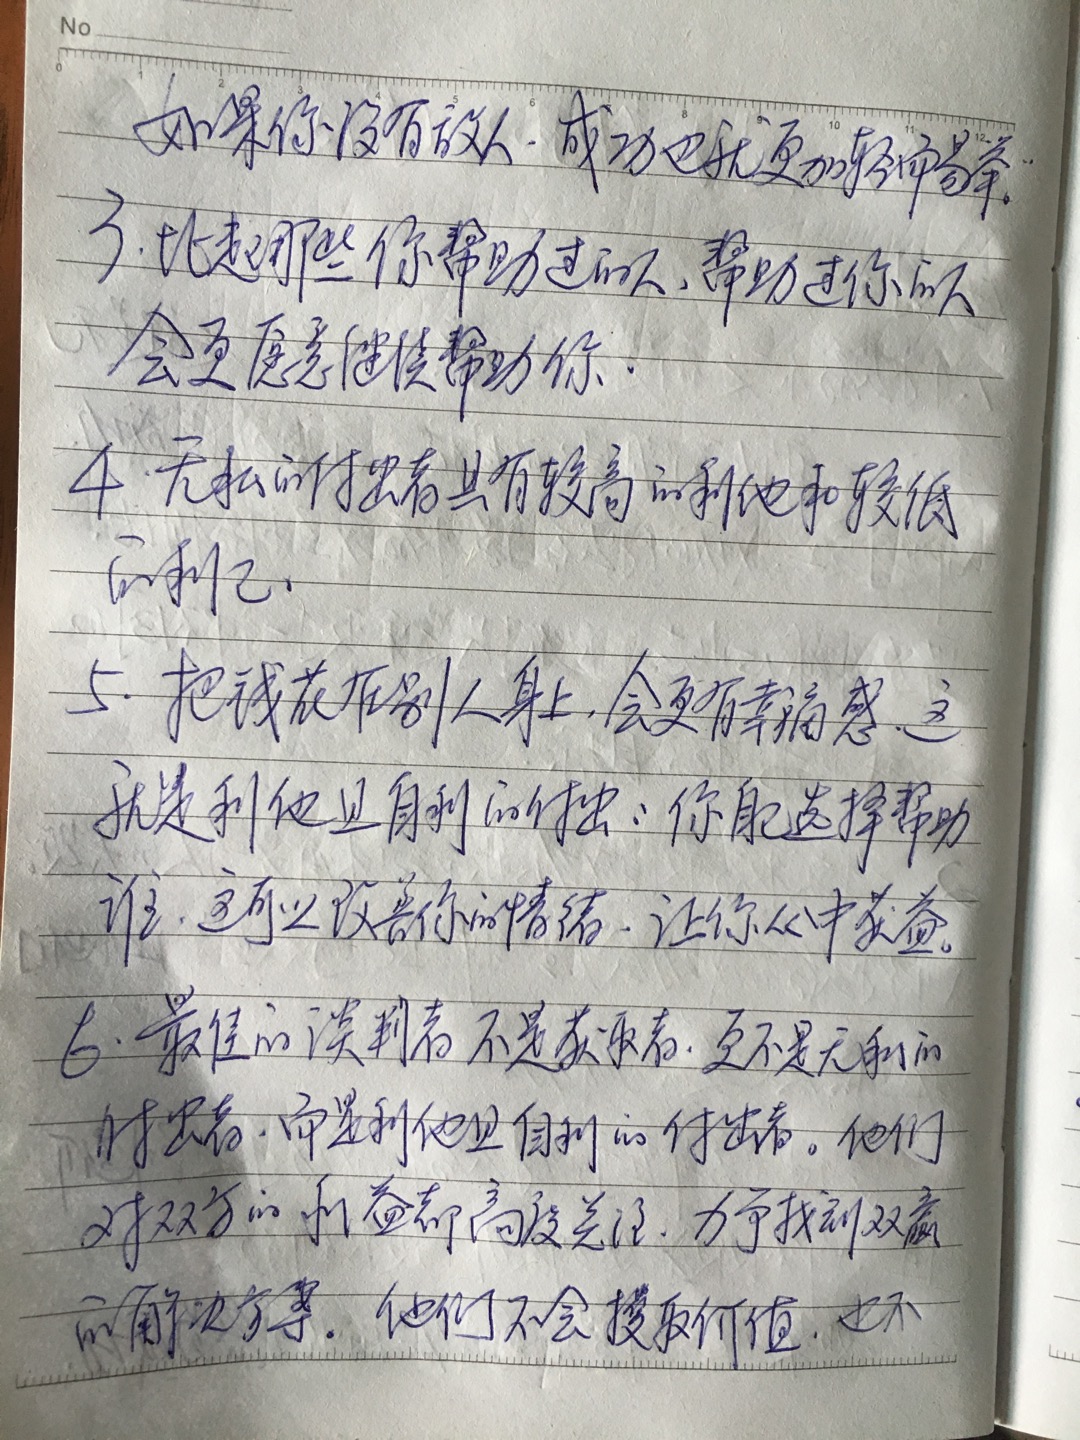 No
0 1 2 3 4 5 6 8 9 10 11 12
如果你没有敌人、成功也就更加轻而易举。
3.比起那些你帮助过的人、帮助过你的人
会更愿意继续帮助你.
4.无私的付出者具有较高的利他和较低
的利己、
5.把钱花在别人身上、会更有幸福感、这
就是利他且自利的付出:你自己选择帮助
谁、这可以改善你的情绪、让你从中获益。
6.最佳的谈判者不是获取者、更不是无私的
付出者、而是利他且自利的付出者。他们
对双方的利益都高度关注、力争找到双赢
的解决方案。他们不会攫取价值、也不